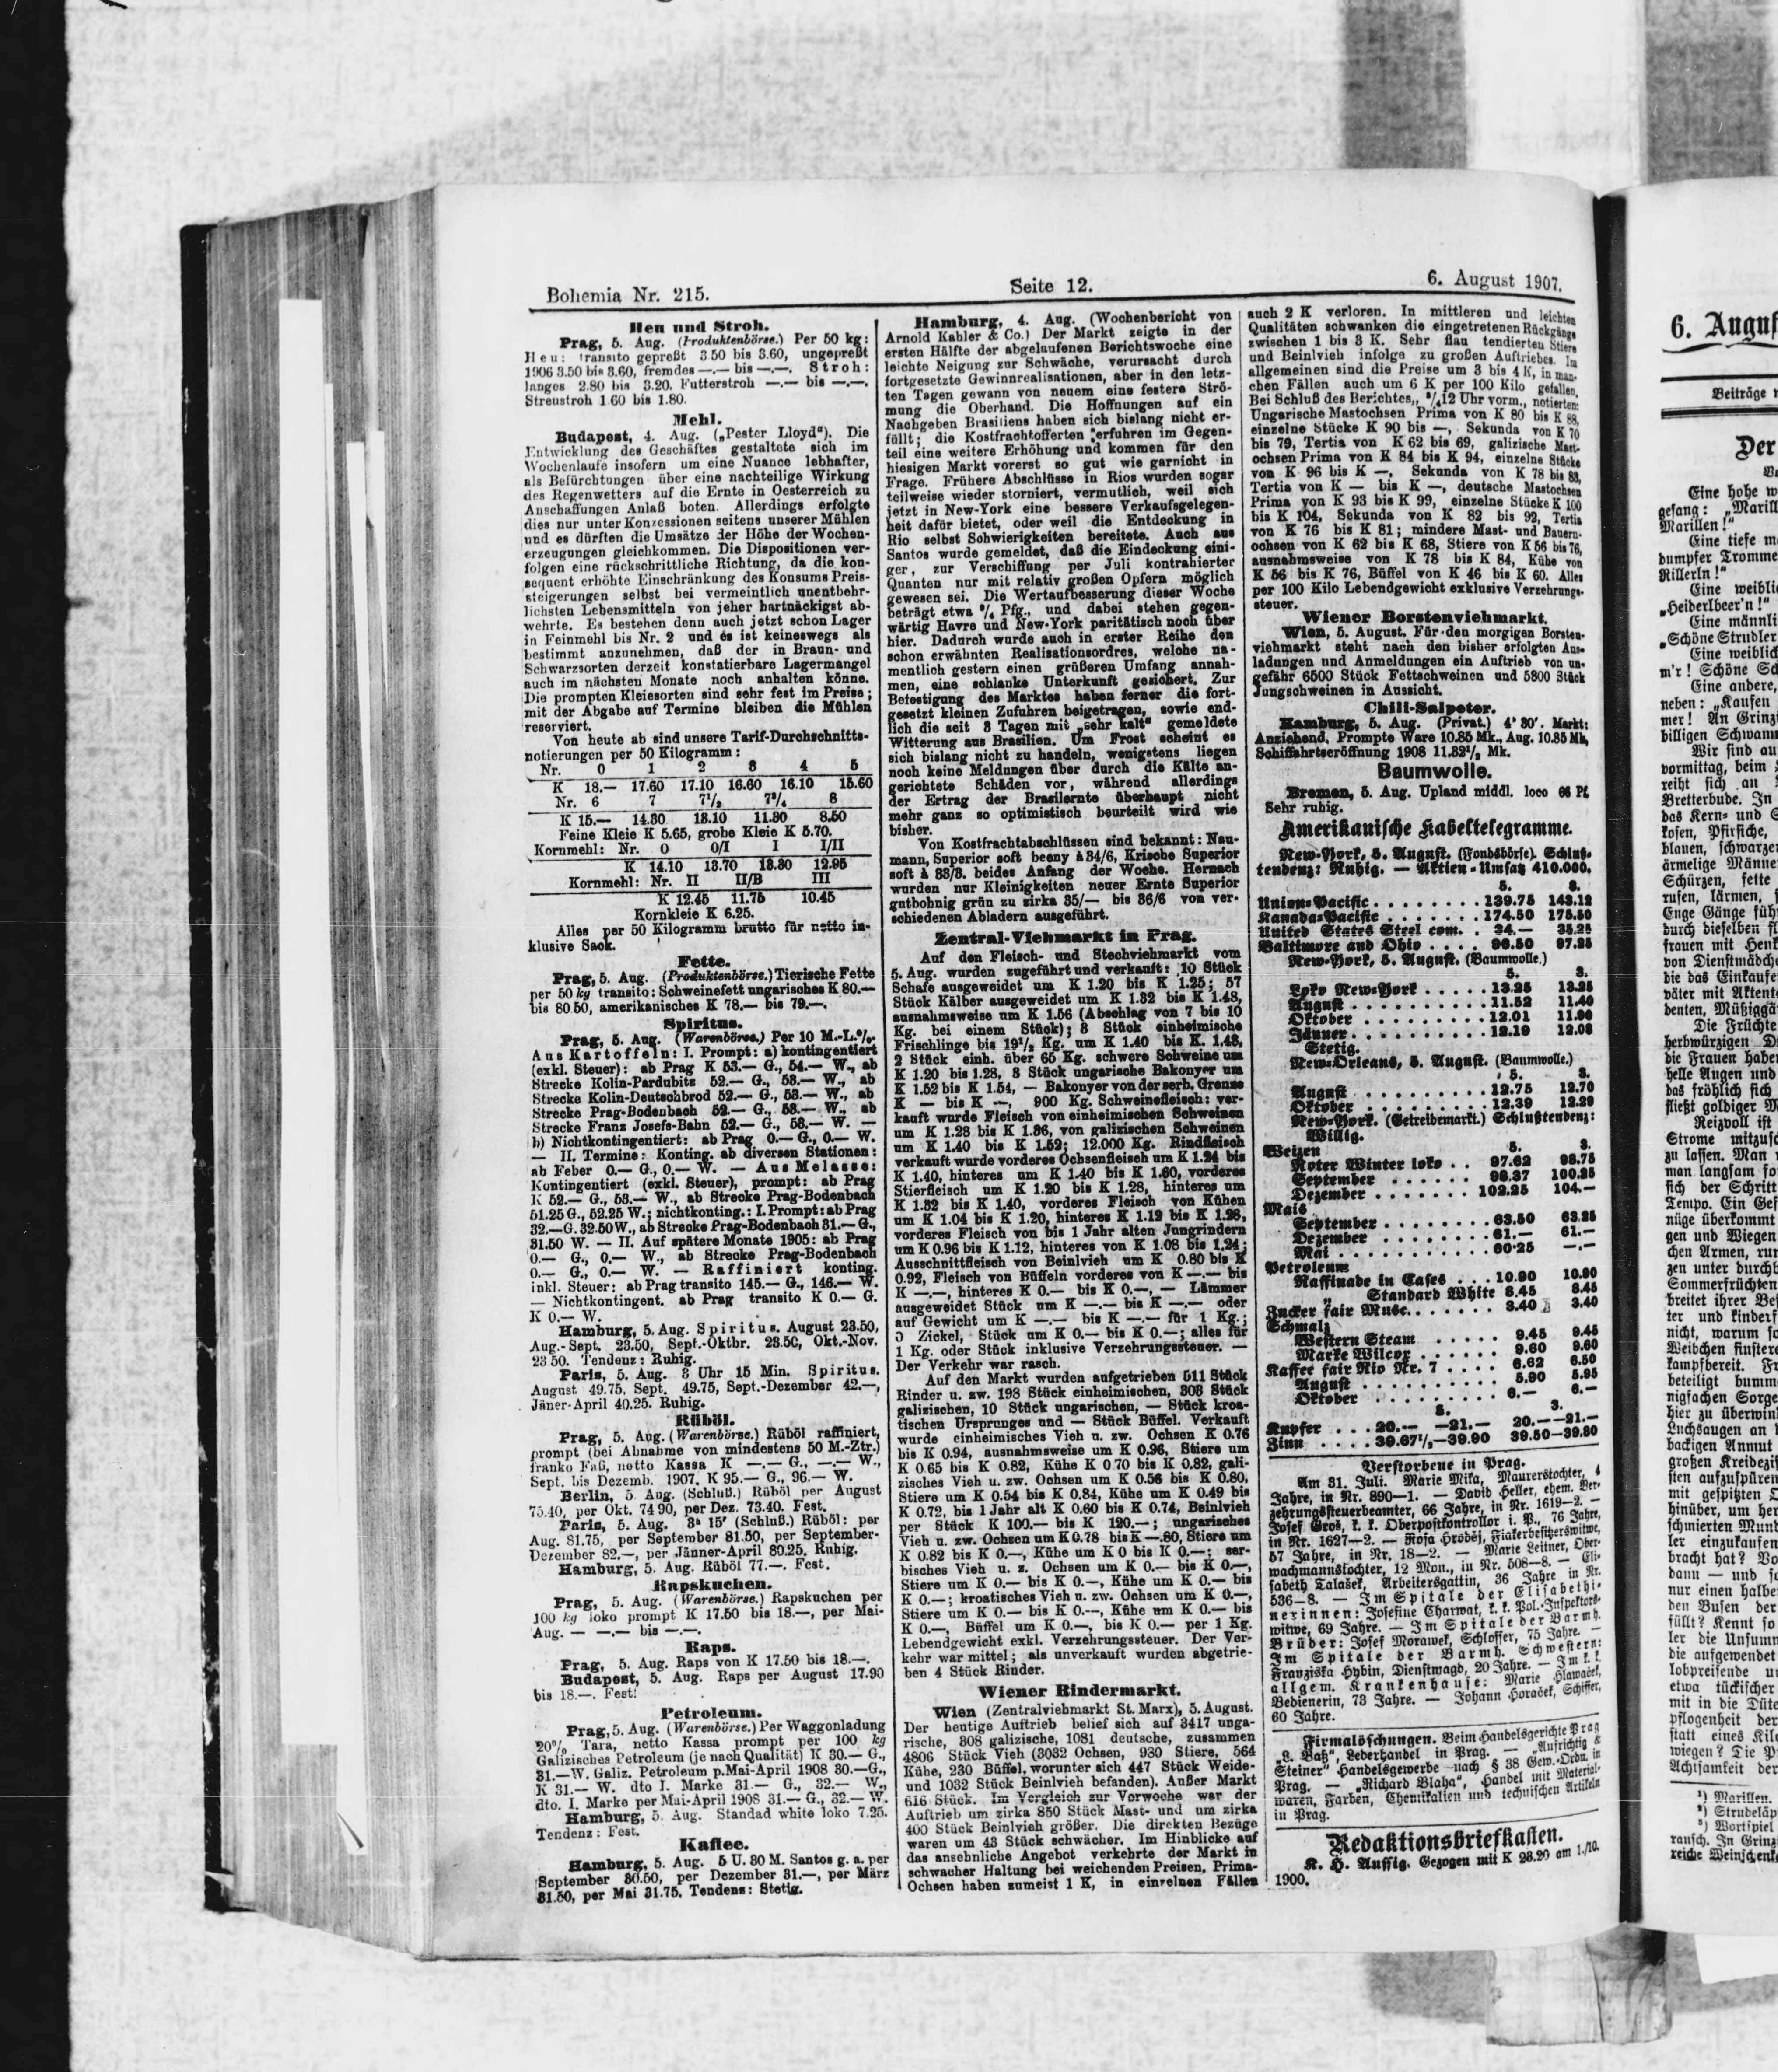 Bohemia Nr. 215.
Seite 12.
6. August 1907.
Heu und Stroh.
Prag, 5. Aug. (Produktenbörse.) Per 50 kg:
Heu: transito gepreßt 3 50 bis 3.60, ungepreßt
1906 3.50 bis 3.60, fremdes —.— bis —.—. Stroh:
langes 2.80 bis 3.20. Futterstroh —.— bis —.—.
Streustroh 1.60 bis 1.80.
Mehl.
Budapest, 4. Aug. („Pester Lloyd“). Die
Entwicklung des Geschäftes gestaltete sich im
Wochenlaufe insofern um eine Nuance lebhafter,
als Befürchtungen über eine nachteilige Wirkung
des Regenwetters auf die Ernte in Oesterreich zu
Anschaffungen Anlaß boten. Allerdings erfolgte
dies nur unter Konzessionen seitens unserer Mühlen
und es dürften die Umsätze der Höhe der Wochen-
erzeugungen gleichkommen. Die Dispositionen ver-
folgen eine rückschrittliche Richtung, da die kon-
sequent erhöhte Einschränkung des Konsums Preis-
steigerungen selbst bei vermeintlich unentbehr-
lichsten Lebensmitteln von jeher hartnäckigst ab-
wehrte. Es bestehen denn auch jetzt schon Lager
in Feinmehl bis Nr. 2 und es ist keineswegs als
bestimmt anzunehmen, daß der in Braun- und
Schwarzsorten derzeit konstatierbare Lagermangel
auch im nächsten Monate noch anhalten könne.
Die prompten Kleiesorten sind sehr fest im Preise;
mit der Abgabe auf Termine bleiben die Mühlen
reserviert.
Von heute ab sind unsere Tarif-Durchschnitts-
notierungen per 50 Kilogramm:
Nr. 0 1 2 3 4 5
K 18.— 17.60 17.10 16.60 16.10 15.60
Nr. 6 7 7½ 7¾ 8
K 15.— 14.30 13.10 11.80 8.50
Feine Kleie K 5.65, grobe Kleie K 5.70.
Kornmehl: Nr. 0 0/I I I/II
K 14.10 13.70 13.30 12.95
Kornmehl: Nr. II II/B III
K 12.45 11.75 10.45
Kornkleie K 6.25.
Alles per 50 Kilogramm brutto für netto in-
klusive Sack.
Fette.
Prag, 5. Aug. (Produktenbörse.) Tierische Fette
per 50 kg transito: Schweinefett ungarisches K 80.—
bis 80.50, amerikanisches K 78.— bis 79.—.
Spiritus.
Prag, 5. Aug. (Warenbörse.) Per 10 M.-L.%.
Aus Kartoffeln: I. Prompt: a) kontingentiert
(exkl. Steuer): ab Prag K 53.— G., 54.— W., ab
Strecke Kolin-Pardubitz 52.— G., 53.— W., ab
Strecke Kolin-Deutschbrod 52.— G., 53.— W., ab
Strecke Prag-Bodenbach 52.— G., 53.— W., ab
Strecke Franz Josefs-Bahn 52.— G., 53.— W. —
b) Nichtkontingentiert: ab Prag 0.— G., 0.— W.
— II. Termine: Konting. ab diversen Stationen:
ab Feber 0.— G., 0.— W. — Aus Melasse:
Kontingentiert (exkl. Steuer), prompt: ab Prag
K 52.— G., 53.— W., ab Strecke Prag-Bodenbach
51.25 G., 52.25 W.; nichtkonting.: I. Prompt: ab Prag
32.—G. 32.50 W., ab Strecke Prag-Bodenbach 31.— G.,
31.50 W. — II. Auf spätere Monate 1905: ab Prag
0.— G., 0.— W., ab Strecke Prag-Bodenbach
0.— G., 0.— W. — Raffiniert konting.
inkl. Steuer: ab Prag transito 145.— G., 146.— W.
— Nichtkontingent. ab Prag transito K 0.— G.
K 0.— W.
Hamburg, 5. Aug. Spiritus. August 23.50,
Aug.-Sept. 23.50, Sept.-Oktbr. 23.50, Okt.-Nov.
23 50. Tendenz: Ruhig.
Paris, 5. Aug. 3 Uhr 15 Min. Spiritus.
August 49.75, Sept. 49.75, Sept.-Dezember 42.—,
Jäner-April 40.25. Ruhig.
Rüböl.
Prag, 5. Aug. (Warenbörse.) Rüböl raffiniert,
prompt (bei Abnahme von mindestens 50 M.-Ztr.)
franko Faß, netto Kassa K —.— G., —.— W.,
Sept. bis Dezemb. 1907. K 95.— G., 96.— W.
Berlin, 5. Aug. (Schluß.) Rüböl per August
75.40, per Okt. 74 90, per Dez. 73.40. Fest.
Paris, 5. Aug. 3ʰ 15′ (Schluß.) Rüböl: per
Aug. 81.75, per September 81.50, per September-
Dezember 82.—, per Jänner-April 80.25. Ruhig.
Hamburg, 5. Aug. Rüböl 77.—. Fest.
Rapskuchen.
Prag, 5. Aug. (Warenbörse.) Rapskuchen per
100 kg loko prompt K 17.50 bis 18.—, per Mai-
Aug. — —.— bis —.—.
Raps.
Prag, 5. Aug. Raps von K 17.50 bis 18.—.
Budapest, 5. Aug. Raps per August 17.90
bis 18.—. Fest!
Petroleum.
Prag, 5. Aug. (Warenbörse.) Per Waggonladung
20% Tara, netto Kassa prompt per 100 kg
Galizisches Petroleum (je nach Qualität) K 30.— G.,
31.—W. Galiz. Petroleum p.Mai-April 1908 30.—G.,
K 31.— W. dto I. Marke 31.— G., 32.— W.,
dto. I. Marke per Mai-April 1908 31.— G., 32.— W.
Hamburg, 5. Aug. Standad white loko 7.25.
Tendenz: Fest.
Kaffee.
Hamburg, 5. Aug. 5 U. 30 M. Santos g. a. per
September 30.50, per Dezember 31.—, per März
31.50, per Mai 31.75. Tendenz: Stetig.
Hamburg, 4. Aug. (Wochenbericht von
Arnold Kabler & Co.) Der Markt zeigte in der
ersten Hälfte der abgelaufenen Berichtswoche eine
leichte Neigung zur Schwäche, verursacht durch
fortgesetzte Gewinnrealisationen, aber in den letz-
ten Tagen gewann von neuem eine festere Strö-
mung die Oberhand. Die Hoffnungen auf ein
Nachgeben Brasiliens haben sich bislang nicht er-
füllt; die Kostfrachtofferten erfuhren im Gegen-
teil eine weitere Erhöhung und kommen für den
hiesigen Markt vorerst so gut wie garnicht in
Frage. Frühere Abschlüsse in Rios wurden sogar
teilweise wieder storniert, vermutlich, weil sich
jetzt in New-York eine bessere Verkaufsgelegen-
heit dafür bietet, oder weil die Entdeckung in
Rio selbst Schwierigkeiten bereitete. Auch aus
Santos wurde gemeldet, daß die Eindeckung eini-
ger, zur Verschiffung per Juli kontrahierter
Quanten nur mit relativ großen Opfern möglich
gewesen sei. Die Wertaufbesserung dieser Woche
beträgt etwa ¾ Pfg., und dabei stehen gegen-
wärtig Havre und New-York paritätisch noch über
hier. Dadurch wurde auch in erster Reihe den
schon erwähnten Realisationsordres, welche na-
mentlich gestern einen grüßeren Umfang annah-
men, eine schlanke Unterkunft gesichert. Zur
Befestigung des Marktes haben ferner die fort-
gesetzt kleinen Zufuhren beigetragen, sowie end-
lich die seit 8 Tagen mit „sehr kalt“ gemeldete
Witterung aus Brasilien. Um Frost scheint es
sich bislang nicht zu handeln, wenigstens liegen
noch keine Meldungen über durch die Kälte an-
gerichtete Schäden vor, während allerdings
der Ertrag der Brasilernte überhaupt nicht
mehr ganz so optimistisch beurteilt wird wie
bisher.
Von Kostfrachtabschlüssen sind bekannt: Nau-
mann, Superior soft beeny à 34/6, Krische Superior
soft à 33/3. beides Anfang der Woche. Hernach
wurden nur Kleinigkeiten neuer Ernte Superior
gutbohnig grün zu zirka 35/— bis 36/6 von ver-
schiedenen Abladern ausgeführt.
Zentral-Viehmarkt in Prag.
Auf den Fleisch- und Stechviehmarkt vom
5. Aug. wurden zugeführt und verkauft: 10 Stück
Schafe ausgeweidet um K 1.20 bis K 1.25; 57
Stück Kälber ausgeweidet um K 1.32 bis K 1.48,
ausnahmsweise um K 1.56 (Abschlag von 7 bis 10
Kg. bei einem Stück); 8 Stück einheimische
Frischlinge bis 19½ Kg. um K 1.40 bis K. 1.48,
2 Stück einh. über 65 Kg. schwere Schweine um
K 1.20 bis 1.28, 8 Stück ungarische Bakonyer um
K 1.52 bis K 1.54, — Bakonyer von der serb. Grenze
K — bis K —, 900 Kg. Schweinefleisch: ver-
kauft wurde Fleisch von einheimischen Schweinen
um K 1.28 bis K 1.36, von galizischen Schweinen
um K 1.40 bis K 1.52; 12.000 Kg. Rindfleisch
verkauft wurde vorderes Ochsenfleisch um K 1.24 bis
K 1.40, hinteres um K 1.40 bis K 1.60, vorderes
Stierfleisch um K 1.20 bis K 1.28, hinteres um
K 1.32 bis K 1.40, vorderes Fleisch von Kühen
um K 1.04 bis K 1.20, hinteres K 1.12 bis K 1.28,
vorderes Fleisch von bis 1 Jahr alten Jungrindern
um K 0.96 bis K 1.12, hinteres von K 1.08 bis 1.24;
Ausschnittfleisch von Beinlvieh um K 0.80 bis K
0.92, Fleisch von Büffeln vorderes von K —.— bis
K —.—, hinteres K 0.— bis K 0.—, — Lämmer
ausgeweidet Stück um K —.— bis K —.— oder
auf Gewicht um K —.— bis K —.— für 1 Kg.;
0 Zickel, Stück um K 0.— bis K 0.—; alles für
1 Kg. oder Stück inklusive Verzehrungssteuer. —
Der Verkehr war rasch.
Auf den Markt wurden aufgetrieben 511 Stück
Rinder u. zw. 198 Stück einheimischen, 303 Stück
galizischen, 10 Stück ungarischen, — Stück kroa-
tischen Ursprunges und — Stück Büffel. Verkauft
wurde einheimisches Vieh u. zw. Ochsen K 0.76
bis K 0.94, ausnahmsweise um K 0.96, Stiere um
K 0 65 bis K 0.82, Kühe K 0 70 bis K 0.82, gali-
zisches Vieh u. zw. Ochsen um K 0.56 bis K 0.80,
Stiere um K 0.54 bis K 0.84, Kühe um K 0.49 bis
K 0.72, bis 1 Jahr alt K 0.60 bis K 0.74, Beinlvieh
per Stück K 100.— bis K 120.—; ungarisches
Vieh u. zw. Ochsen um K 0.78 bis K —.80, Stiere um
K 0.82 bis K 0.—, Kühe um K 0 bis K 0.—; ser-
bisches Vieh u. z. Ochsen um K 0.— bis K 0.—,
Stiere um K 0.— bis K 0.—, Kühe um K 0.— bis
K 0.—; kroatisches Vieh u. zw. Ochsen um K 0.—,
Stiere um K 0.— bis K 0.—, Kühe um K 0.— bis
K 0.—, Büffel um K 0.—, bis K 0.— per 1 Kg.
Lebendgewicht exkl. Verzehrungssteuer. Der Ver-
kehr war mittel; als unverkauft wurden abgetrie-
ben 4 Stück Rinder.
Wiener Rindermarkt.
Wien (Zentralviehmarkt St. Marx), 5. August.
Der heutige Auftrieb belief sich auf 3417 unga-
rische, 308 galizische, 1081 deutsche, zusammen
4806 Stück Vieh (3032 Ochsen, 930 Stiere, 564
Kühe, 230 Büffel, worunter sich 447 Stück Weide-
und 1032 Stück Beinlvieh befanden). Außer Markt
616 Stück. Im Vergleich zur Vorwoche war der
Auftrieb um zirka 850 Stück Mast- und um zirka
400 Stück Beinlvieh größer. Die direkten Bezüge
waren um 43 Stück schwächer. Im Hinblicke auf
das ansehnliche Angebot verkehrte der Markt in
schwacher Haltung bei weichenden Preisen. Prima-
Ochsen haben zumeist 1 K, in einzelnen Fällen
auch 2 K verloren. In mittleren und leichten
Qualitäten schwanken die eingetretenen Rückgänge
zwischen 1 bis 3 K. Sehr flau tendierten Stiere
und Beinlvieh infolge zu großen Auftriebes. Im
allgemeinen sind die Preise um 3 bis 4 K, in man-
chen Fällen auch um 6 K per 100 Kilo gefallen.
Bei Schluß des Berichtes, ¾12 Uhr vorm., notierten:
Ungarische Mastochsen Prima von K 80 bis K 88,
einzelne Stücke K 90 bis —, Sekunda von K 70
bis 79, Tertia von K 62 bis 69, galizische Mast-
ochsen Prima von K 84 bis K 94, einzelne Stücke
von K 96 bis K —, Sekunda von K 78 bis 83,
Tertia von K — bis K —, deutsche Mastochsen
Prima von K 93 bis K 99, einzelne Stücke K 100
bis K 104, Sekunda von K 82 bis 92, Tertia
von K 76 bis K 81; mindere Mast- und Bauern-
ochsen von K 62 bis K 68, Stiere von K 56 bis 76,
ausnahmsweise von K 78 bis K 84, Kühe von
K 56 bis K 76, Büffel von K 46 bis K 60. Alles
per 100 Kilo Lebendgewicht exklusive Verzehrungs-
steuer.
Wiener Borstenviehmarkt.
Wien, 5. August. Für den morgigen Borsten-
viehmarkt steht nach den bisher erfolgten Aus-
ladungen und Anmeldungen ein Auftrieb von un-
gefähr 6500 Stück Fettschweinen und 5800 Stück
Jungschweinen in Aussicht.
Chili-Salpeter.
Hamburg, 5. Aug. (Privat.) 4ʰ 30′. Markt:
Anziehend. Prompte Ware 10.85 Mk., Aug. 10.85 Mk,
Schiffahrtseröffnung 1908 11.32½ Mk.
Baumwolle.
Bremen, 5. Aug. Upland middl. loco 66 Pf.
Sehr ruhig.
Amerikanische Kabeltelegramme.
New-York, 5. August. (Fondsbörse). Schluß-
tendenz: Ruhig. — Aktien-Umsatz 410.000.
5. 3.
Union-Pacific . . . . . . . . 139.75 143.12
Kanada-Pacific . . . . . . . 174.50 175.50
United States Steel com. . 34.— 35.25
Baltimore and Ohio . . . . 96.50 97.25
New-York, 5. August. (Baumwolle.)
5. 3.
Loko New-York . . . . . 13.25 13.25
August . . . . . . . . . . 11.52 11.40
Oktober . . . . . . . . . 12.01 11.90
Jänner . . . . . . . . . . 12.19 12.08
Stetig.
New-Orleans, 5. August. (Baumwolle.)
5. 3.
August . . . . . . . . . . 12.75 12.70
Oktober . . . . . . . . . 12.39 12.29
New-York. (Getreidemarkt.) Schlußtendenz:
Willig.
Weizen 5. 3.
Roter Winter loko . . 97.62 98.75
September . . . . . . 98.37 100.25
Dezember . . . . . . . 102.25 104.—
Mais
September . . . . . . . . 63.50 63.25
Dezember . . . . . . . . 61.— 61.—
Mai . . . . . . . . . . . 60·25 —.—
Petroleum
Raffinade in Cases . . . 10.90 10.90
„ Standard White 8.45 8.45
Zucker fair Musc. . . . . . . 3.40 3.40
Schmalz
Western Steam . . . . . 9.45 9.45
Marke Wilcox . . . . . . 9.60 9.60
Kaffee fair Rio Nr. 7 . . . . 6.62 6.50
August . . . . . . . . . . 5.90 5.95
Oktober . . . . . . . . . 6.— 6.—
5. 3.
Kupfer . . . 20.— —21.— 20.——21.—
Zinn . . . . 39.67½—39.90 39.50—39.80
Verstorbene in Prag.
Am 31. Juli. Marie Mika, Maurerstochter, 4
Jahre, in Nr. 890—1. — David Heller, ehem. Ver-
zehrungssteuerbeamter, 66 Jahre, in Nr. 1619—2. —
Josef Groš, k. k. Oberpostkontrollor i. P., 76 Jahre,
in Nr. 1627—2. — Rosa Hroběj, Fiakerbesitzerswitwe,
57 Jahre, in Nr. 18—2. — Marie Leitner, Ober-
wachmannstochter, 12 Mon., in Nr. 508—8. — Eli-
sabeth Talašek, Arbeitersgattin, 36 Jahre in Nr.
536—8. — Im Spitale der Elisabethi-
nerinnen: Josefine Charwat, k. k. Pol.-Inspektors-
witwe, 69 Jahre. — Im Spitale der Barmh.
Brüder: Josef Morawek, Schlosser, 75 Jahre. —
Im Spitale der Barmh. Schwestern:
Franziska Hybin, Dienstmagd, 20 Jahre. — Im k. k.
allgem. Krankenhause: Marie Hlawaček,
Bedienerin, 73 Jahre. — Johann Horaček, Schiffer,
60 Jahre.
Firmalöschungen. Beim Handelsgerichte Prag
„L. Baß“, Lederhandel in Prag. — „Aufrichtig &
Steiner“ Handelsgewerbe nach § 38 Gew.-Ordn. in
Prag. — „Richard Blaha“, Handel mit Material-
waren, Farben, Chemikalien und technischen Artikeln
in Prag.
Redaktionsbriefkasten.
K. H. Aussig. Gezogen mit K 28.20 am 1./10.
1900.
6. Augus
Beiträge
Der
Eine hohe
gesang: „Marill
Marillen!“
Eine tiefe
dumpfer Tromme
Rillerln!“
Eine weibli
„Heiderlbeer'n!“
Eine männli
„Schöne Strudler
Eine weiblich
m'r! Schöne
Eine andere,
neben: „Kaufen
mer! An Grinzi
billigen Schwam
Wir sind
vormittag, beim
reiht sich an
Bretterbude. In
das Kern- und
kosen, Pfirsiche,
blauen, schwarzen
ärmelige Männer
Schürzen, fette
rufen, lärmen,
Enge Gänge füh
durch dieselben
frauen mit Henk
von Dienstmädch
die das Einkaufe
väter mit Aktent
denten, Müßiggä
Die Früchte
herbwürzigen
die Frauen habe
helle Augen und
das fröhlich sich
fließt goldiger
Reizvoll ist
Strome mitzusch
zu lassen. Man
man langsam
sich der Schritt
Tempo. Ein
nüge überkommt
gen und Wiegen
chen Armen,
zen unter durch
Sommerfrüchten
breitet ihrer
ter und kinder
nicht, warum
Weibchen finster
kampfbereit.
beteiligt bumm
nigfachen Sorge
hier zu überwin
Luchsaugen an
backigen Anmut
großen Kreidezif
sten aufzuspüren
mit gespitzten
hinüber, um
schmierten Mund
ler einzukaufen
bracht hat?
dann — und
nur einen halbe
den Busen der
füllt? Kennt so
ler die Unsumm
die aufgewendet
lobpreisende
etwa tückischer
mit in die Düte
pflogenheit der
statt eines Kilo
wiegen? Die
Achtsamkeit der
¹) Marillen.
²) Strudeläp
³) Wortspiel
rausch. In Grinz
reiche Weinschenk